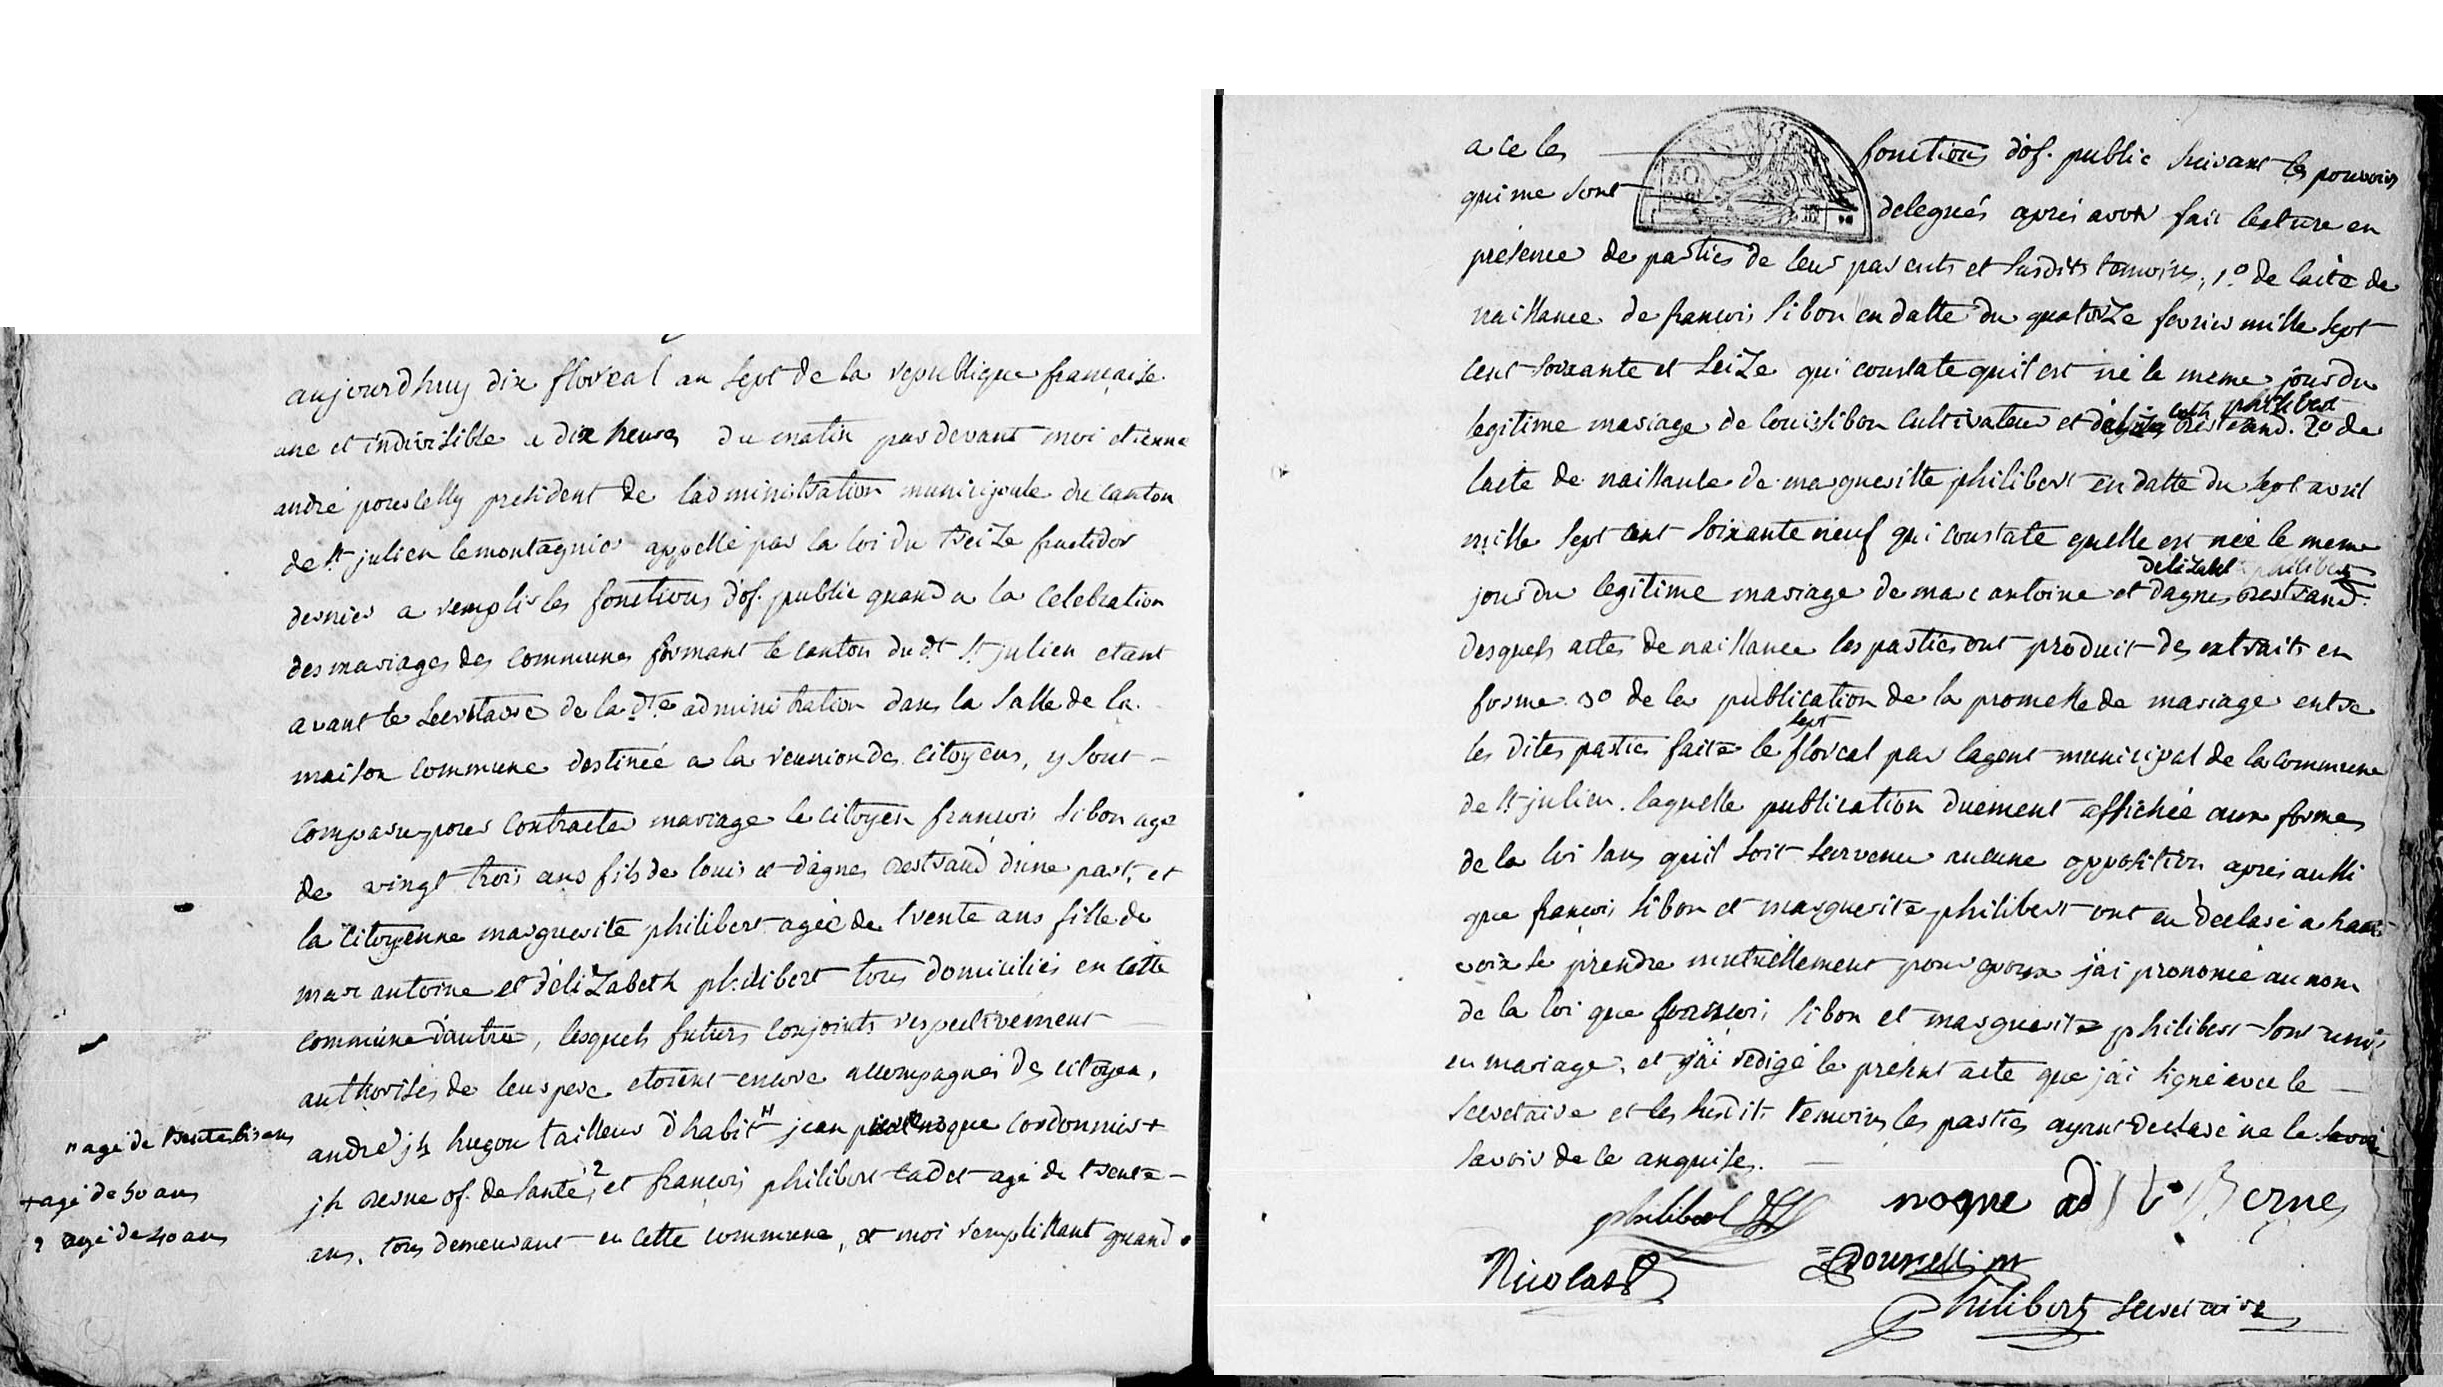 aujourdhuy dix floreal an sept de la republique française
une et indivisible a dix heures du matin par devant moi etienne
andré pourcelly president de ladministration municipale du canton
de st julien le montagnier appellé par la loi du treize fructidor
dernier a remplir les fonctions d'of. public quand a la celebration
des mariages des communes formant le canton du dt st julien etant
avant le secretaire de la dte administration dans la salle de la
maison commune destinée a la reunion des citoyens, y sont
comparu pour contracter mariage le citoyen françois sibon agé
de vingt trois ans fils de louis et d'agnes d'une part, et
la citoyenne marguerite philibert agée de trente ans fille de
marc antoine et d'elizabeth philibert tous domiciliés en cette
commune d'autre, lesquels futurs conjoints respectivement
authorisés de leus pere etoient encore accompagnés des citoyen,
andré jh hugou tailleur d'habit " jean noque cordonnier +
" agé de trente six ans
jh berne of. de santé, 2 et françois philibert cadet agé de trente
+ agé de 50 ans
ans, tous demeurant en cette commune, et moi remplissant quand
2 agé de 40 ans
a ce les fonctions d'of. public suivant les pouvoirs
qui me sont delegués après avoir fait lecture en
présence de parties de leur parents et susdits temoins, 1o de l'acte de
naissance de françois sibon en datte du quatorze fevrier mille sept
cent soixante et seize qui constate qu'il est né le meme jour du
legitime mariage de louis sibon cultivateur et 2o de
l'acte de naissance de marguerite philibert en datte du sept avril
mille sept cent soixante neuf qui constate quelle est née le meme
delizabet philibert
jour du legitime mariage de marc antoine et d'agnes
desquels actes de naissance les parties ont produit des extraits en
forme 3o de la publication de la promesse de mariage entre
sept
les dites partie faite le floreal par lagent municipal de la commune
de st julien. laquelle publication duement affichée aux formes
de la loi sans qu'il soit survenu aucune opposition après aussi
que françois sibon et marguerite philibert ont eu declaré a haute
voix se prendre mutuellement pour epoux j'ai prononcé au nom
de la loi que françois sibon et marguerite philibert sont unis
en mariage, et j'ai redigé le présent acte que j'ai signé avec le
secretaire et les susdits temoins les parties ayant declaré ne le savoir
savoir de ce anquises.
philibert noque ad Berne
Nicolas pourcelli pt
Philibert secretaire